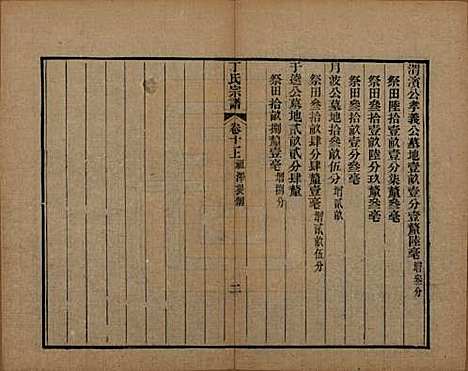 渭濱公孝義公墓地壹畝壹分壹釐陸毫增叄分
祭田陸拾壹畝壹分柒釐叄毫
祭田叄拾壹畝陸分玖釐叄毫
祭田叄拾畝壹分叄毫
月波公墓地叄畝伍分增貳畝
祭田叄拾畝肆分肆釐壹毫增貳畝伍分
于逵公墓地貳畝貳分肆釐
祭田拾畝捌釐壹毫增捌分
丁氏宗譜
卷十上
二